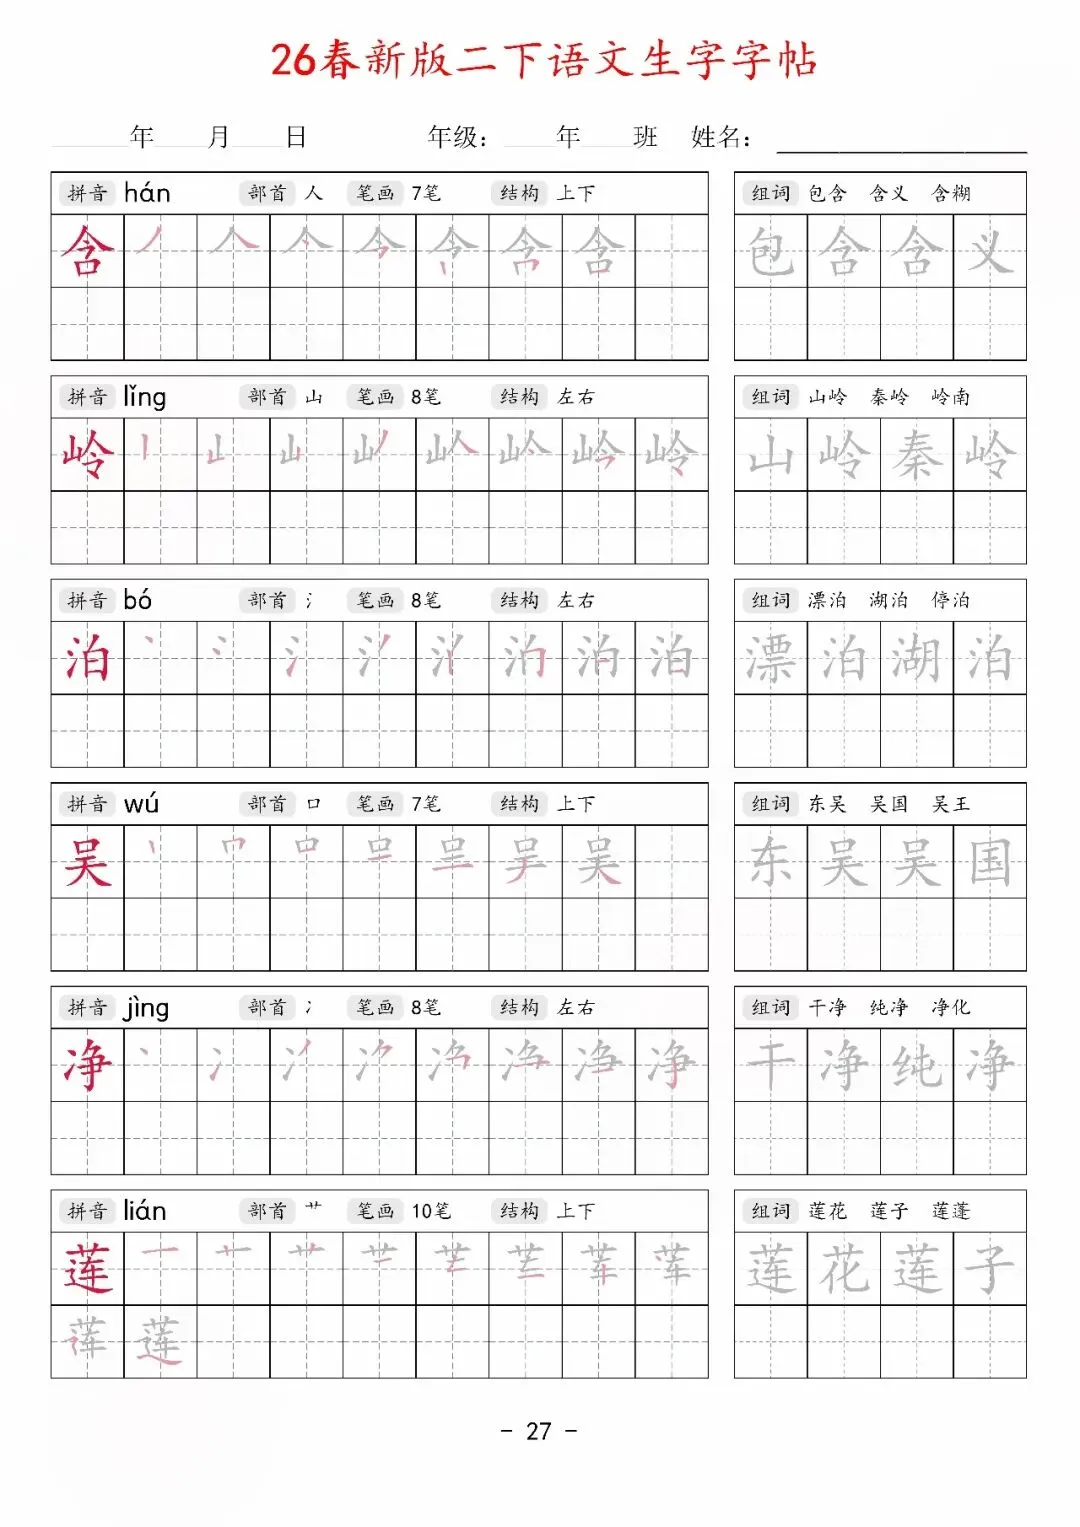 26春新版二下语文生字字帖
年 月 日 年级： 年 班 姓名：
拼音 hán 部首 人 笔画 7笔 结构 上下 组词 包含 含义 含糊
含 丿 人 亽 今 含 包含含义
拼音 lǐng 部首 山 笔画 8笔 结构 左右 组词 山岭 秦岭 岭南
岭 丨 山 岭 山岭秦岭
拼音 bó 部首 氵 笔画 8笔 结构 左右 组词 漂泊 湖泊 停泊
泊 丶 冫 氵 泊 泊 漂泊湖泊
拼音 wú 部首 口 笔画 7笔 结构 上下 组词 东吴 吴国 吴王
吴 丨 口 吴 东吴吴国
拼音 jìng 部首 冫 笔画 8笔 结构 左右 组词 干净 纯净 净化
净 丶 冫 净 干净纯净
拼音 lián 部首 艹 笔画 10笔 结构 上下 组词 莲花 莲子 莲蓬
莲 一 艹 莲花莲子
莲
- 27 -